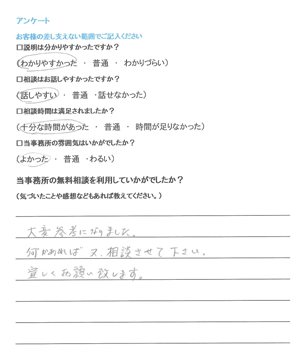 アンケート
お客様の差し支えない範囲でご記入ください
□説明は分かりやすかったですか？
(わかりやすかった ・ 普通 ・ わかりづらい)
□相談はお話しやすかったですか？
(話しやすい ・ 普通 ・話せなかった)
□相談時間は満足されましたか？
(十分な時間があった ・ 普通 ・ 時間が足りなかった)
□当事務所の雰囲気はいかがでしたか？
(よかった ・ 普通 ・わるい)
当事務所の無料相談を利用していかがでしたか？
(気づいたことや感想などもあれば教えてください。)
大変参考になりました。
何かあれば又、相談させて下さい。
宜しくお願い致します。